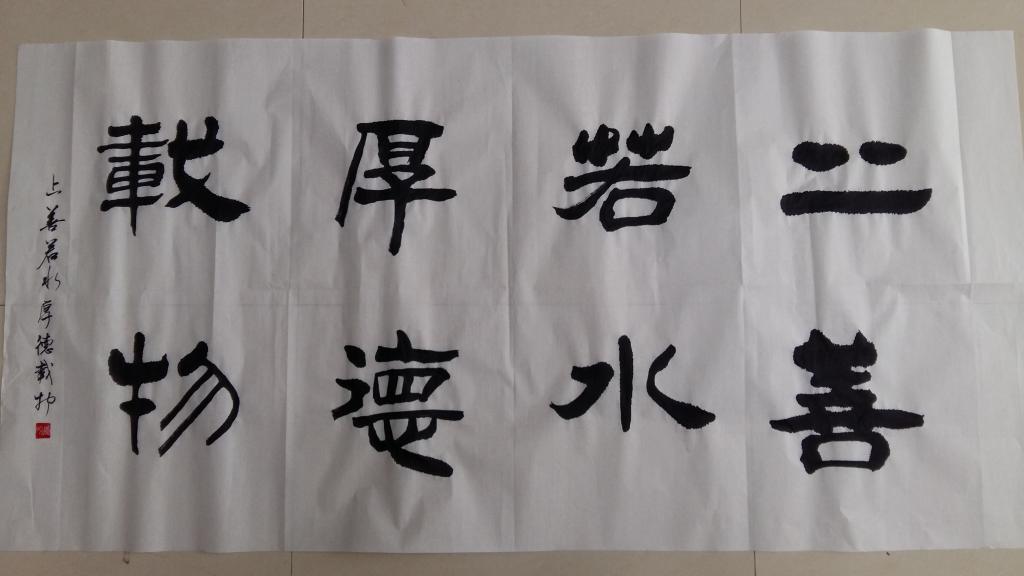 上善
若水
厚德
載物
上善若水厚德載物